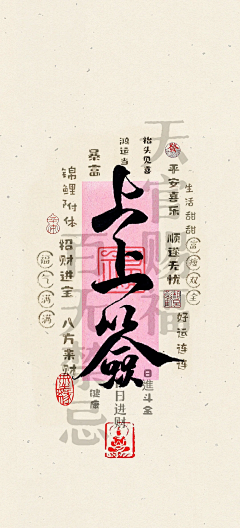 上上簽
天官赐福
百无禁忌
生活甜甜
平安喜乐
顺遂无忧
好运连连
抬头见喜
鸿运当
暴富
锦鲤附体
招财进宝
八方来财
福气满满
日進斗金
日进财
健康